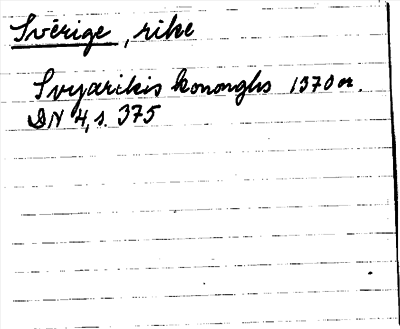 Svērige, rike
Svyærikis kononghs 1370 or.
DN 4, s. 375